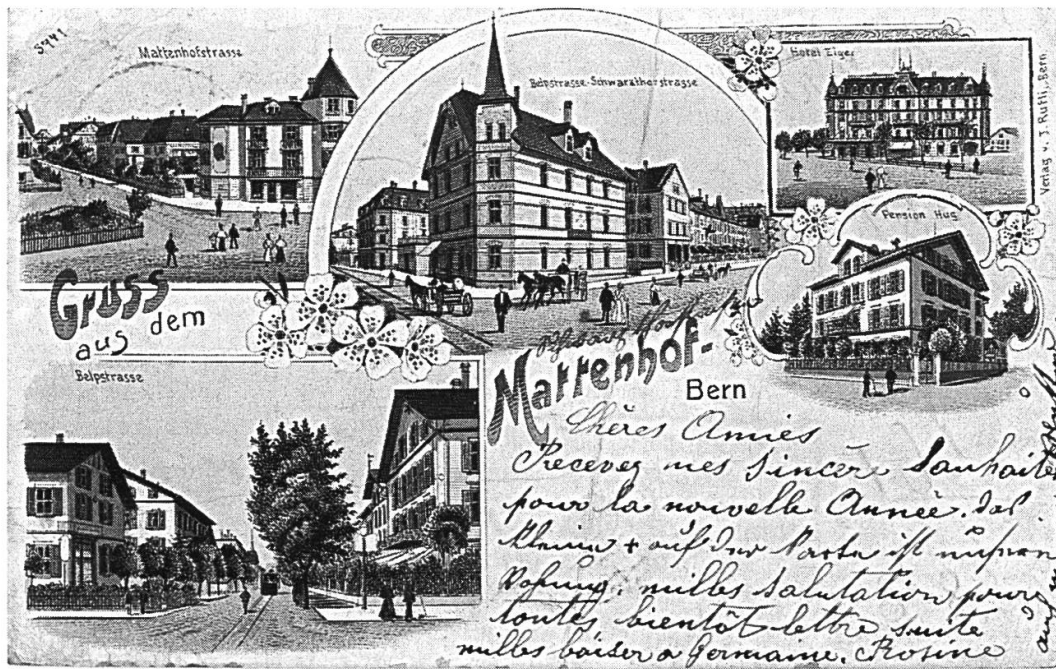 3941
Mattenhofstrasse
Belpstrasse-Schwarzthorstrasse
Hotel Eiger
Verlag v. J. Rüfli, Bern.
Pension Hug
Gruss
aus dem
Mattenhof-
Bern
Belpstrasse
Chères Amies
Recevez mes sincère sauhaites
pour la nouvelle Année. das
kleine + auf der Karte ist unsere
Wohnung. milles salutation pour
toutes bientôt lettre suite
milles baiser a Germaine. Rosine